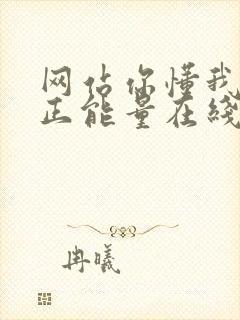 网佔你懂我
正能量在綫
冉曦